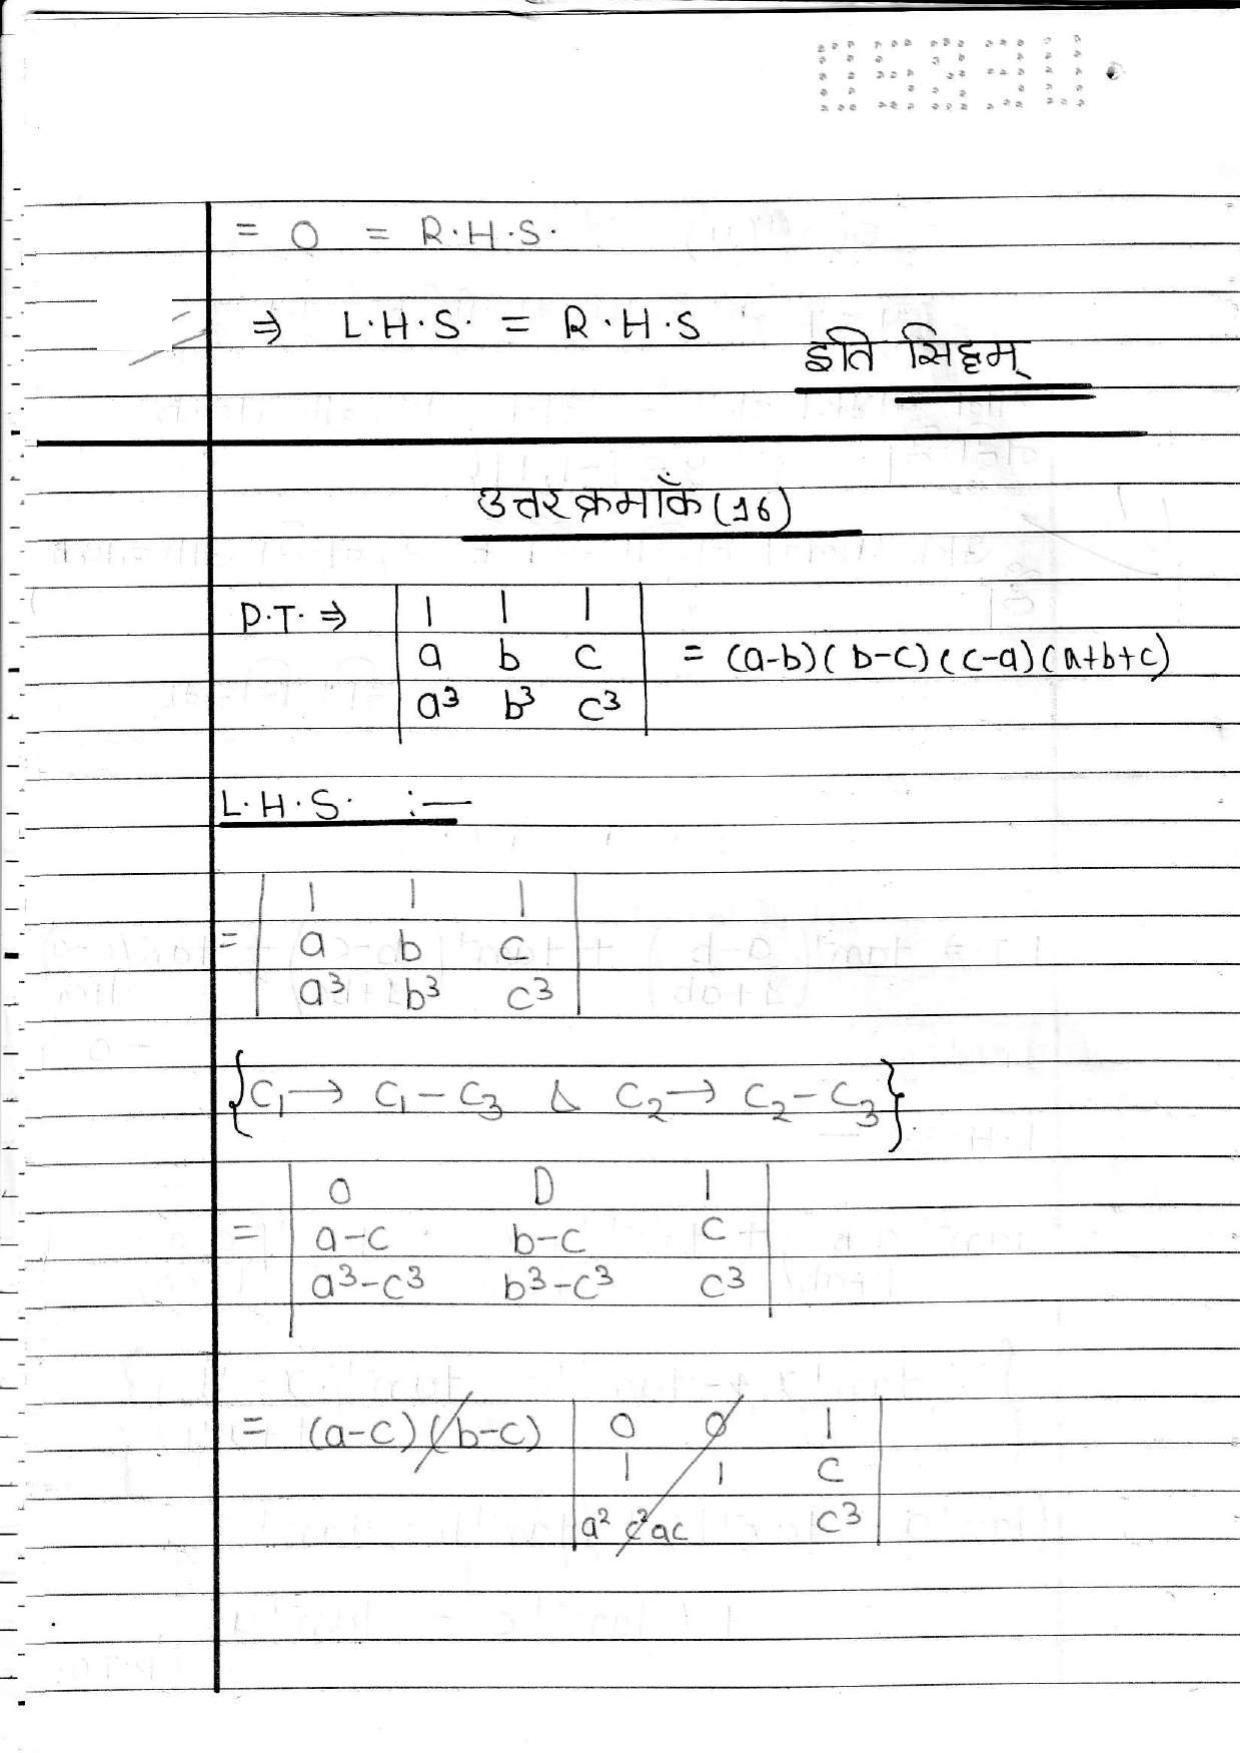 = 0 = R.H.S.
⇒ L.H.S. = R.H.S
इति सिद्धम्
उत्तर क्रमाँक (16)
P.T. ⇒ | 1 1 1 |
| a b c | = (a-b)(b-c)(c-a)(a+b+c)
| a³ b³ c³ |
L.H.S. :—
| 1 1 1 |
= | a b c |
| a³ b³ c³ |
{C₁ → C₁ - C₃ & C₂ → C₂ - C₃}
| 0 0 1 |
= | a-c b-c c |
| a³-c³ b³-c³ c³ |
= (a-c)(b-c) | 0 0 1 |
| 1 1 c |
| a² c² ac c³ |